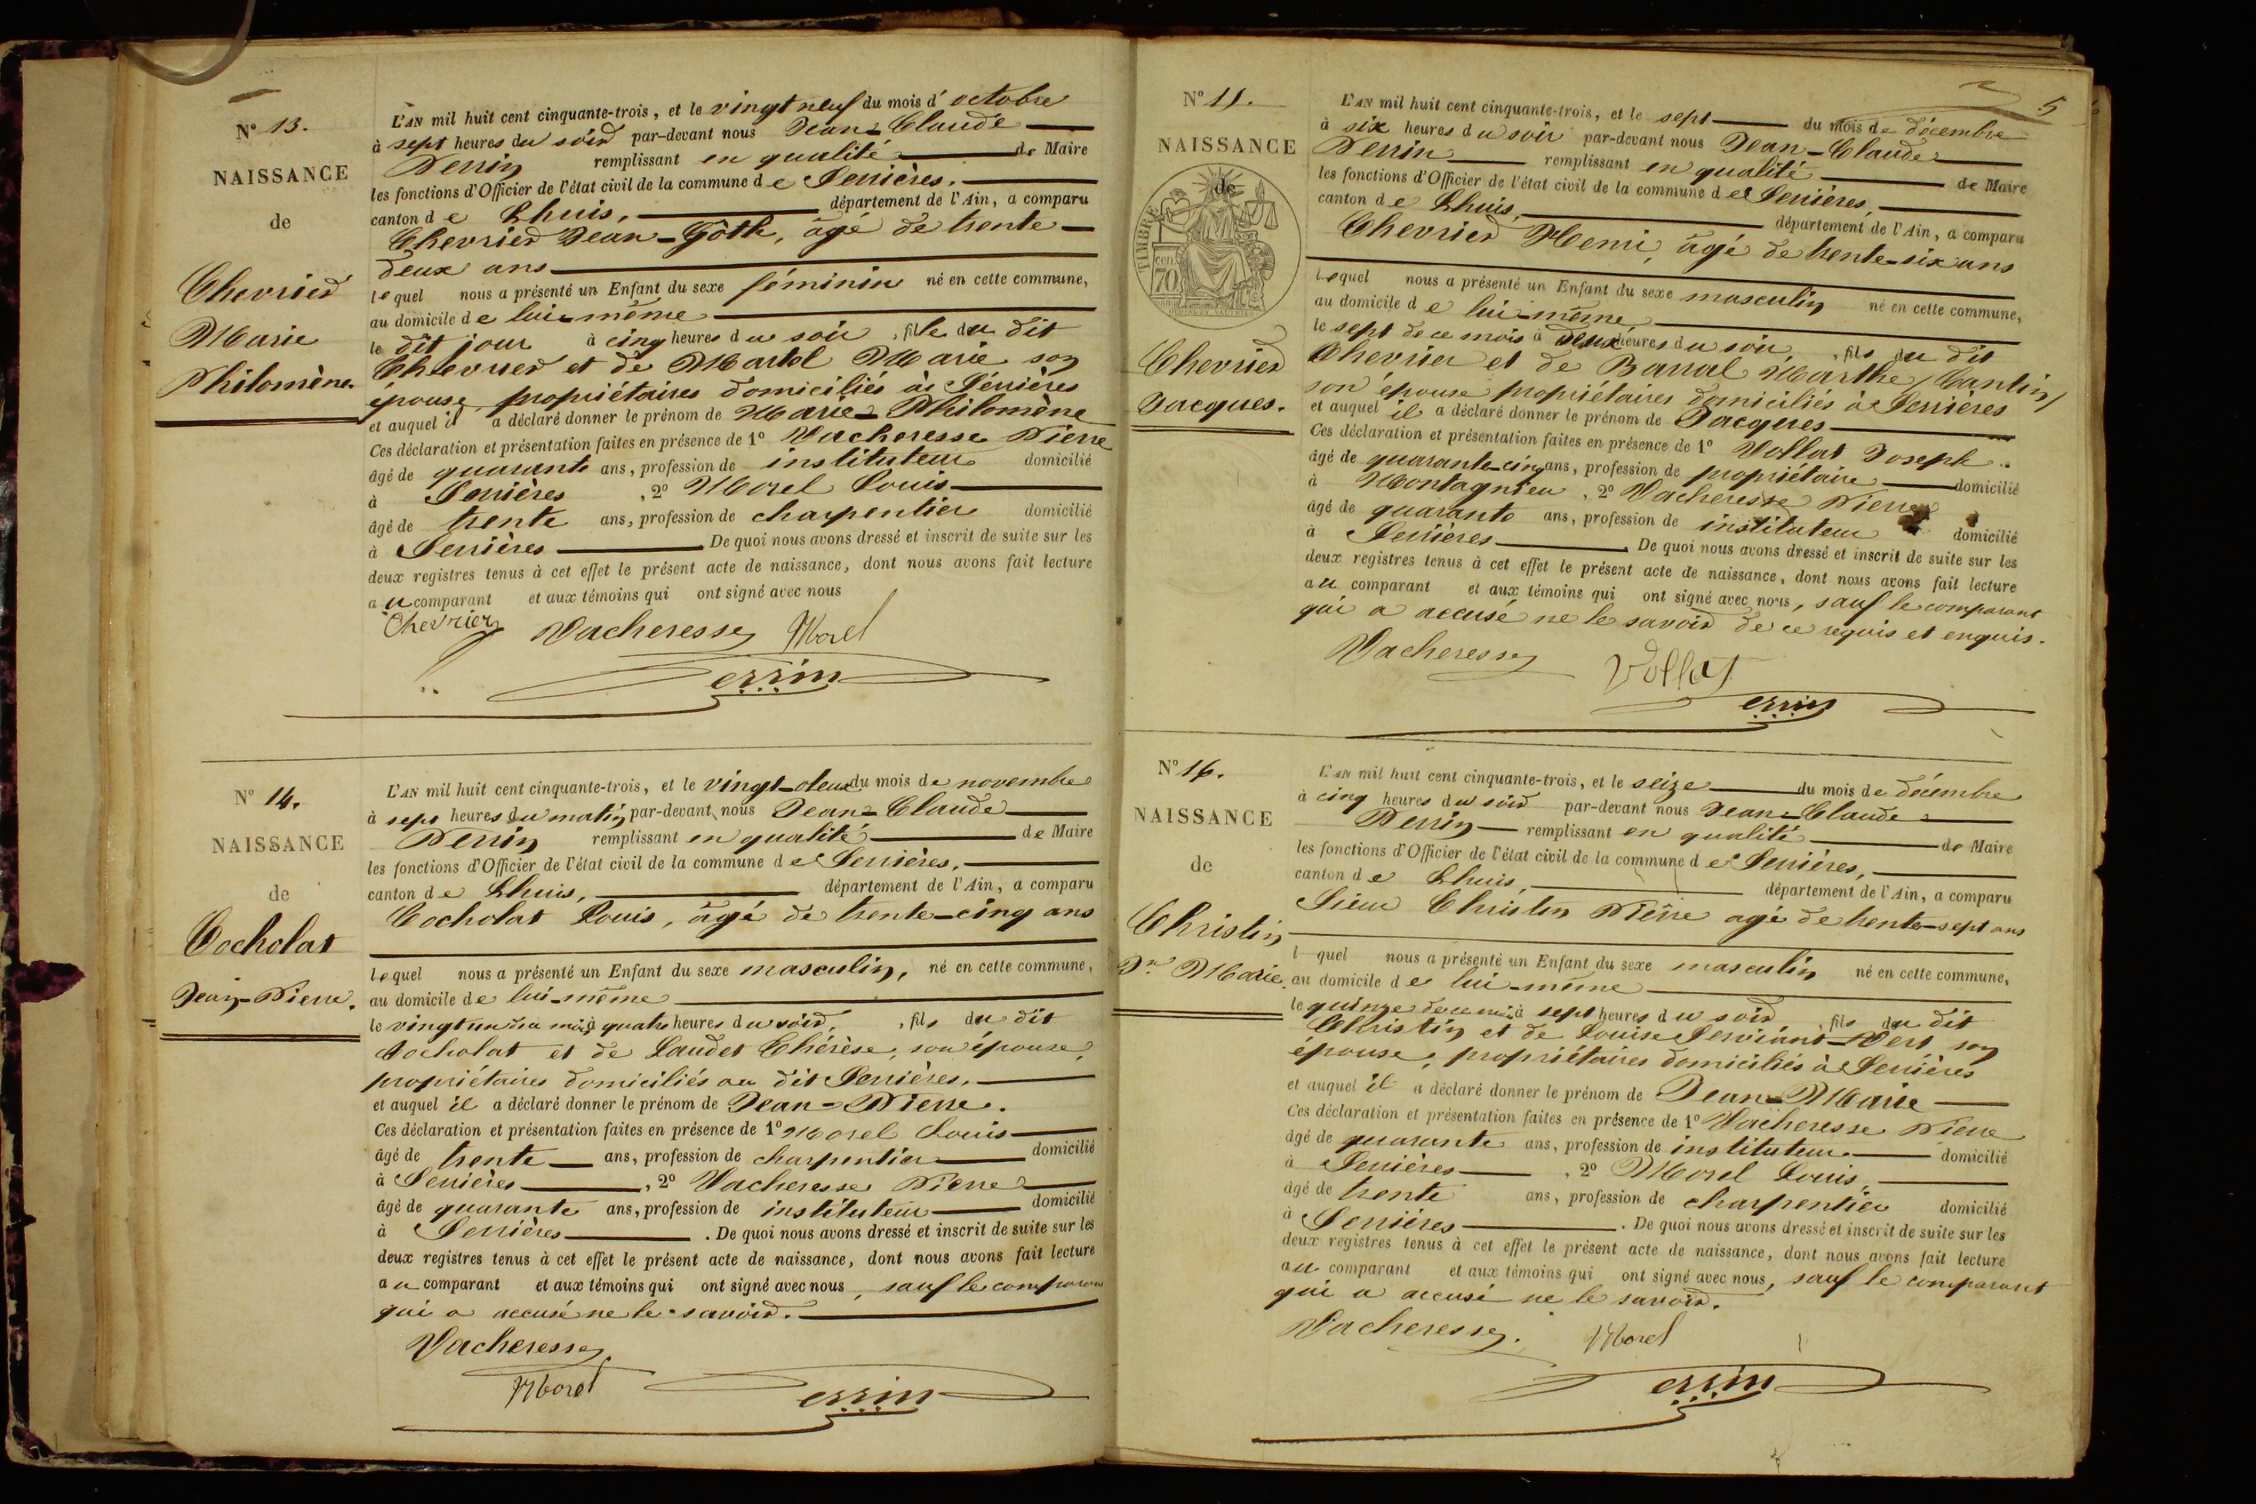 N° 13.
NAISSANCE
de
Chevrier
Marie
Philomène
L'AN mil huit cent cinquante-trois, et le vingt neuf du mois d'octobre
à sept heures du soir par-devant nous Jean-Claude
Perrin remplissant en qualité de Maire
les fonctions d'Officier de l'état civil de la commune de Serrières,
canton de Lhuis, département de l'Ain, a comparu
Chevrier Jean-Gôth, âgé de trente
deux ans
lequel nous a présenté un Enfant du sexe féminin né en cette commune,
au domicile de lui-même
le dit jour à cinq heures du soir, fille du dit
Chevrier et de Martel Marie son
épouse, propriétaires domiciliés à Serrières
et auquel il a déclaré donner le prénom de Marie-Philomène
Ces déclaration et présentation faites en présence de 1° Vacheresse Pierre
âgé de quarante ans, profession de instituteur domicilié
à Serrières, 2° Morel Louis
âgé de trente ans, profession de charpentier domicilié
à Serrières De quoi nous avons dressé et inscrit de suite sur les
deux registres tenus à cet effet le présent acte de naissance, dont nous avons fait lecture
au comparant et aux témoins qui ont signé avec nous
Chevrier Vacheresse Morel
Perrin
N° 14.
NAISSANCE
de
Cocholat
Jean-Pierre.
L'AN mil huit cent cinquante-trois, et le vingt-deux du mois de novembre
à sept heures du matin par-devant nous Jean-Claude
Perrin remplissant en qualité de Maire
les fonctions d'Officier de l'état civil de la commune de Serrières,
canton de Lhuis, département de l'Ain, a comparu
Cocholat Louis, âgé de trente-cinq ans
lequel nous a présenté un Enfant du sexe masculin, né en cette commune,
au domicile de lui-même
le vingt un du mois à quatre heures du soir, fils du dit
Cocholat et de Laudet Thérèse, son épouse,
propriétaires domiciliés au dit Serrières.
et auquel il a déclaré donner le prénom de Jean-Pierre.
Ces déclaration et présentation faites en présence de 1° Morel Louis
âgé de trente ans, profession de charpentier domicilié
à Serrières, 2° Vacheresse Pierre
âgé de quarante ans, profession de instituteur domicilié
à Serrières. De quoi nous avons dressé et inscrit de suite sur les
deux registres tenus à cet effet le présent acte de naissance, dont nous avons fait lecture
au comparant et aux témoins qui ont signé avec nous, sauf le comparant
qui a accusé ne le savoir.
Vacheresse
Morel Perrin
5
N° 15.
NAISSANCE
de
TIMBRE
70
Chevrier
Jacques.
L'AN mil huit cent cinquante-trois, et le sept du mois de décembre
à six heures du soir par-devant nous Jean-Claude
Perrin remplissant en qualité de Maire
les fonctions d'Officier de l'état civil de la commune de Serrières,
canton de Lhuis, département de l'Ain, a comparu
Chevrier Henri, âgé de trente-six ans
lequel nous a présenté un Enfant du sexe masculin né en cette commune,
au domicile de lui-même
le sept de ce mois à deux heures du soir, fils du dit
Chevrier et de Barral Marthe (Cantin)
son épouse propriétaires domiciliés à Serrières
et auquel il a déclaré donner le prénom de Jacques
Ces déclaration et présentation faites en présence de 1° Vollat Joseph
âgé de quarante-cinq ans, profession de propriétaire domicilié
à Montagnieu, 2° Vacheresse Pierre
âgé de quarante ans, profession de instituteur domicilié
à Serrières. De quoi nous avons dressé et inscrit de suite sur les
deux registres tenus à cet effet le présent acte de naissance, dont nous avons fait lecture
au comparant et aux témoins qui ont signé avec nous, sauf le comparant
qui a accusé ne le savoir de ce requis et enquis.
Vacheresse Vollat
Perrin
N° 16.
NAISSANCE
de
Christin
Jn Marie.
L'AN mil huit cent cinquante-trois, et le seize du mois de décembre
à cinq heures du soir par-devant nous Jean-Claude
Perrin remplissant en qualité de Maire
les fonctions d'Officier de l'état civil de la commune de Serrières,
canton de Lhuis, département de l'Ain, a comparu
Sieur Christin Pierre agé de trente-sept ans
l quel nous a présenté un Enfant du sexe masculin né en cette commune,
au domicile de lui-même
le quinze de ce mois à sept heures du soir, fils du dit
Christin et de Louise son
épouse, propriétaires domiciliés à Serrières
et auquel il a déclaré donner le prénom de Jean-Marie
Ces déclaration et présentation faites en présence de 1° Vacheresse Pierre
âgé de quarante ans, profession de instituteur domicilié
à Serrières, 2° Morel Louis,
âgé de trente ans, profession de charpentier domicilié
à Serrières. De quoi nous avons dressé et inscrit de suite sur les
deux registres tenus à cet effet le présent acte de naissance, dont nous avons fait lecture
au comparant et aux témoins qui ont signé avec nous, sauf le comparant
qui a accusé ne le savoir.
Vacheresse. Morel
Perrin